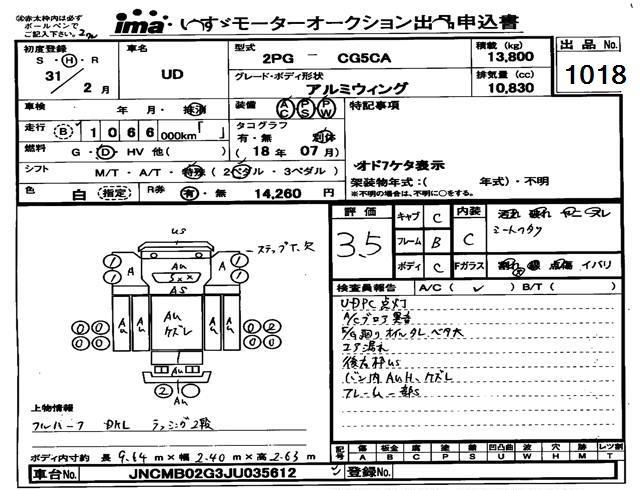 ※赤太枠内は必ず
ボールペンで
ご記入下さい。
ima いすゞモーターオークション出品申込書
初度登録 車名 型式 積載 (kg) 出品No.
S・H・R 31 2月 UD 2PG － CG5CA 13,800
グレード・ボディ形状 排気量 (cc)
アルミウィング 10,830 1018
車検 年 月・抹消 装備 AC PS PW 特記事項
走行 B 1066 000km「 」 タコグラフ 有・無 別体
燃料 G・D・HV 他( ) ( 18年 07月)
オド7ケタ表示
シフト M/T・A/T・特殊 ( 2ペダル ・ 3ペダル ) 架装物年式：( 年式)・不明
※不明の場合は、不明に○をする。
色 白 (指定) R券 有・無 14,260 円
評価 3.5 キャブ C 内装 C
シートヘタリ
フレーム B
ボディ C Fガラス 割れ 点傷 イバリ
検査員報告 A/C( ✓ ) B/T( )
UDPC点灯
A/Cブロア異音
エア漏れ
後右枠US
バン内AUH、ケズレ
フレーム一部S
US
ステップT.欠
1 1 A AU SXX A 1 1
AS
0 0 0 0 AU AU AU ケズレ AU AU 0 2 0 0
AU
2
AU
上物情報
フルハーフ DKL ラッシング2段
ボディ内寸約 長 9.64 m × 幅 2.40 m × 高 2.63 m
記号 傷 A 板金 B 腐 C 塗 P 錆 S 凹凸曲 U 波 W 穴 H 跡 M レツ割 T
車台No. JNCMB02G3JU035612 登録No.